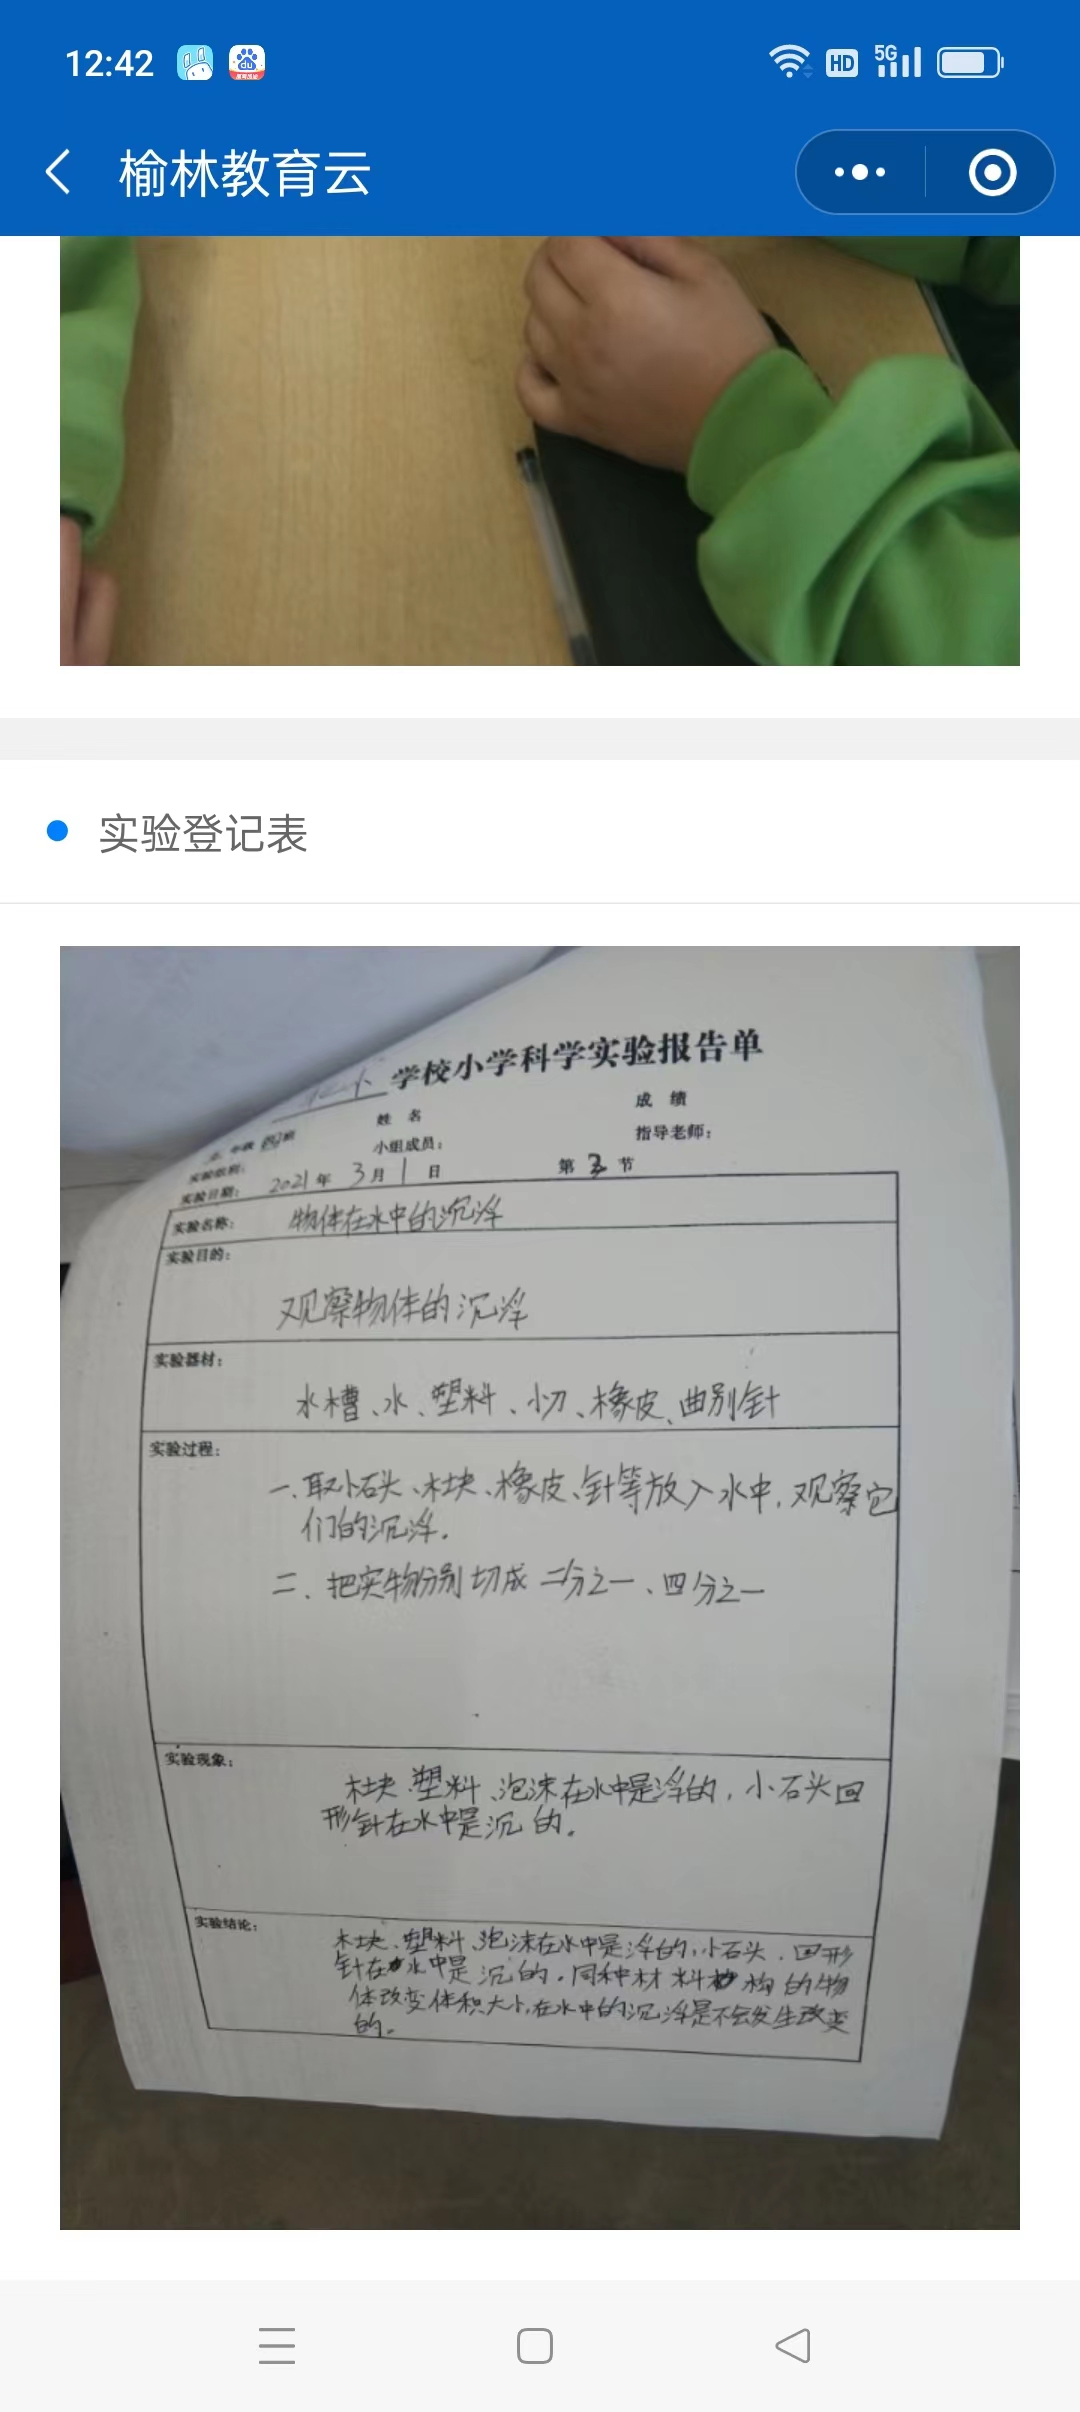 12:42
HD
5G
榆林教育云
实验登记表
学校小学科学实验报告单
姓 名
成 绩
年级 四班
小组成员：
指导老师：
实验日期： 2021年 3月 1日
第 3 节
实验名称： 物体在水中的沉浮
实验目的：
观察物体的沉浮
实验器材：
水槽、水、塑料、小刀、橡皮、曲别针
实验过程：
一、取小石头、木块、橡皮、针等放入水中，观察它
们的沉浮.
二、把实物分别切成 二分之一、四分之一
实验现象：
木块、塑料、泡沫在水中是浮的，小石头回
形针在水中是沉 的。
实验结论：
木块、塑料、泡沫在水中是浮的，小石头、回形
针在水中是沉的。同种材料构的物
体改变体积大小，在水中的沉浮是不会发生改变
的。